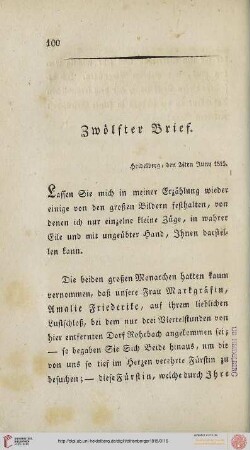 100
Zwölfter Brief.
Heidelberg, den 24ten Juny 1815.
Lassen Sie mich in meiner Erzählung wieder
einige von den großen Bildern festhalten, von
denen ich nur einzelne kleine Züge, in wahrer
Eile und mit ungeübter Hand, Ihnen darstel-
len kann.
Die beiden großen Monarchen hatten kaum
vernommen, daß unsere Frau Markgräfin,
Amalie Friederike, auf ihrem lieblichen
Lustschloß, bei dem nur drei Viertelstunden von
hier entfernten Dorf Rohrbach angekommen sei;
— so begaben Sie Sich Beide hinaus, um die
von uns so tief im Herzen verehrte Fürstin zu
besuchen; — die Fürstin, welche durch Ihre